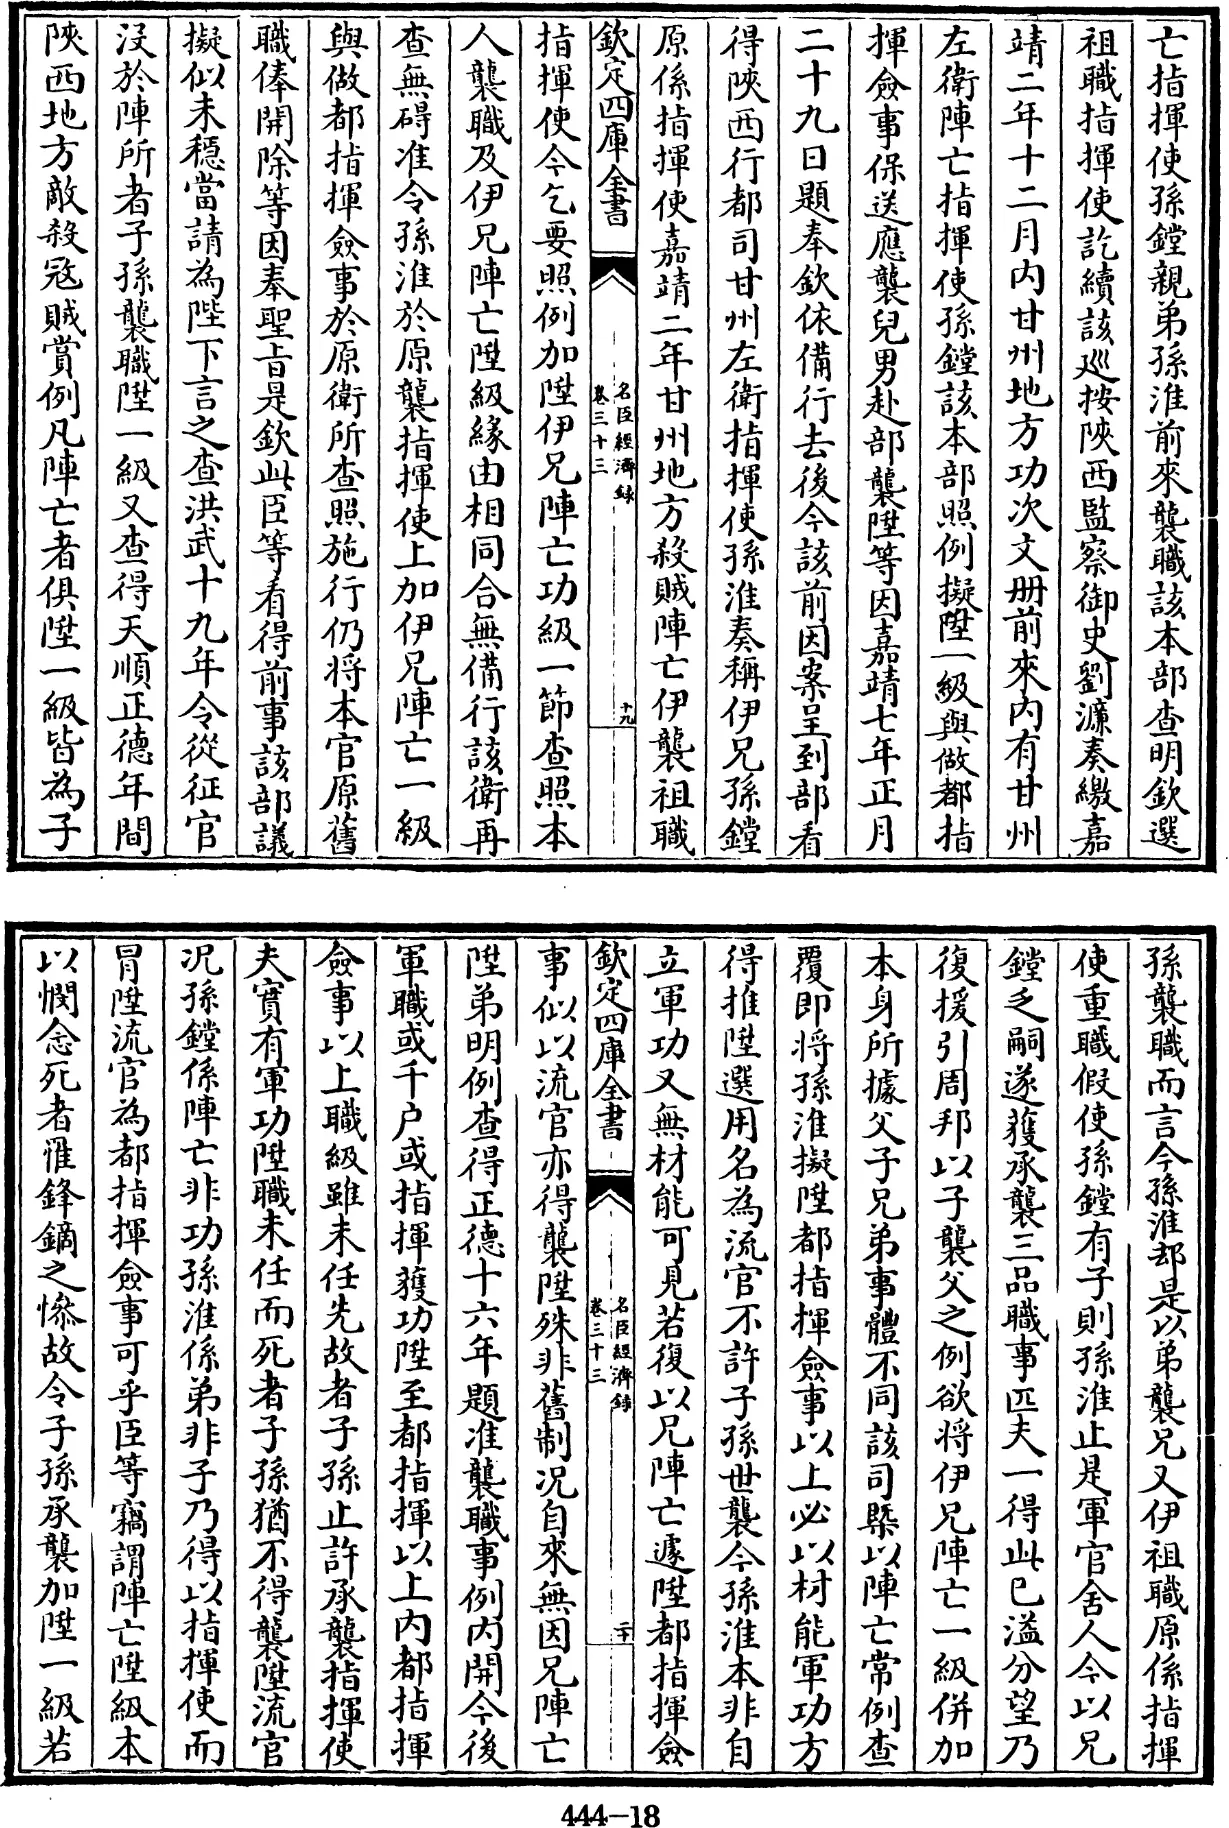 亡指揮使孫鏜親弟孫淮前來襲職該本部查明欽選
祖職指揮使訖續該巡按陜西監察御史劉濂奏繳嘉
靖二年十二月内甘州地方功次文册前來内有甘州
左衛陣亡指揮使孫鏜該本部照例擬陞一級與做都指
揮僉事保送應襲兒男赴部襲陞等因嘉靖七年正月
二十九日題奉欽依備行去後今該前因案呈到部看
得陜西行都司甘州左衛指揮使孫淮奏稱伊兄孫鏜
原係指揮使嘉靖二年甘州地方殺賊陣亡伊襲祖職
欽定四庫全書
名臣經濟録
卷三十三
十九
指揮使今乞要照例加陞伊兄陣亡功級一節查照本
人襲職及伊兄陣亡陞級緣由相同合無備行該衛再
查無碍准令孫淮於原襲指揮使上加伊兄陣亡一級
與做都指揮僉事於原衛所查照施行仍將本官原舊
職俸開除等因奉聖旨是欽此臣等看得前事該部議
擬似未穩當請為陛下言之查洪武十九年令從征官
沒於陣所者子孫襲職陞一級又查得天順正德年間
陜西地方敵殺冦賊賞例凡陣亡者俱陞一級皆為子
孫襲職而言今孫淮却是以弟襲兄又伊祖職原係指揮
使重職假使孫鏜有子則孫淮止是軍官舍人今以兄
鏜乏嗣遂獲承襲三品職事匹夫一得此已溢分望乃
復援引周邦以子襲父之例欲将伊兄陣亡一級併加
本身所據父子兄弟事體不同該司槩以陣亡常例查
覆即將孫淮擬陞都指揮僉事以上必以材能軍功方
得推陞選用名為流官不許子孫世襲今孫淮本非自
立軍功又無材能可見若復以兄陣亡遽陞都指揮僉
欽定四庫全書
名臣經濟録
卷三十三
二十
事似以流官亦得襲陞殊非舊制况自來無因兄陣亡
陞弟明例查得正德十六年題准襲職事例内開今後
軍職或千户或指揮獲功陞至都指揮以上内都指揮
僉事以上職級雖未任先故者子孫止許承襲指揮使
夫實有軍功陞職未任而死者子孫猶不得襲陞流官
况孫鏜係陣亡非功孫淮係弟非子乃得以指揮使而
冐陞流官為都指揮僉事可乎臣等竊謂陣亡陞級本
以憫念死者罹鋒鏑之慘故令子孫承襲加陞一級若
444-18